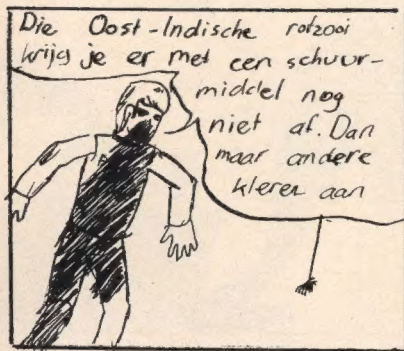 Die Oost-Indische rotzooi
krijg je er met een schuur-
middel nog
niet af. Dan
maar andere
kleren aan